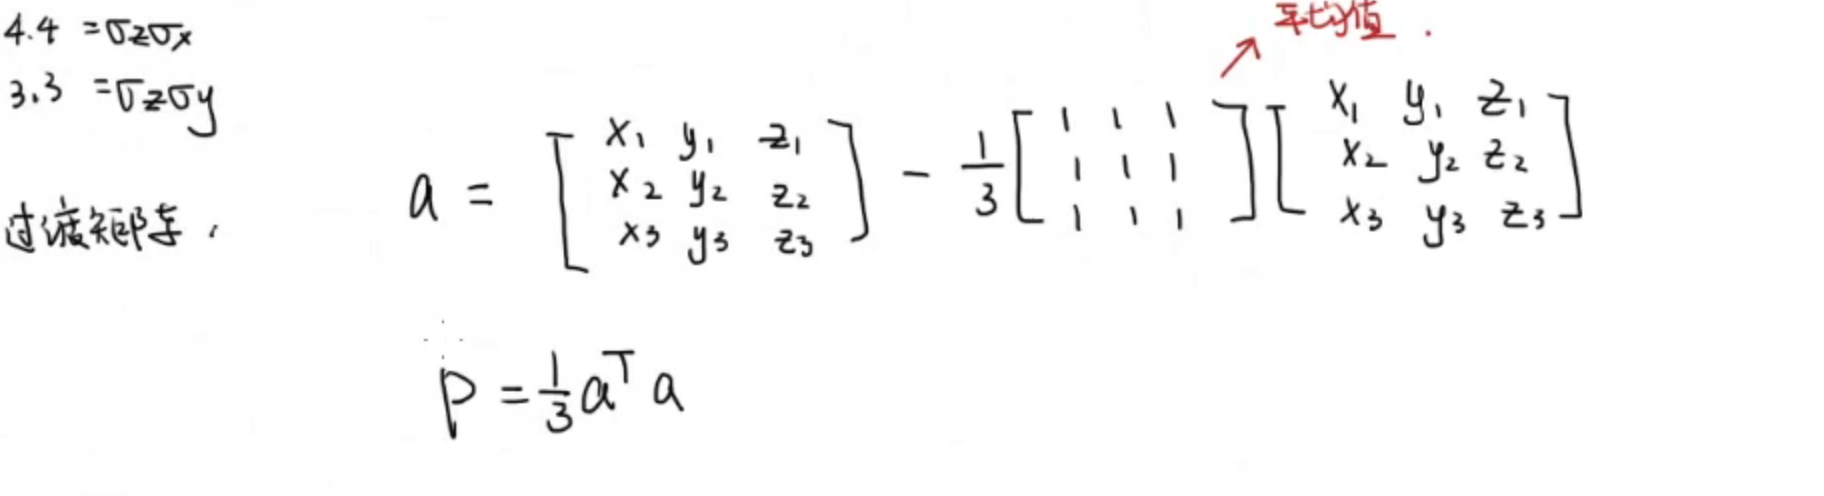 4.4 = σzσx
3.3 = σzσy
平均值.
过渡矩阵.
a = [x₁ y₁ z₁; x₂ y₂ z₂; x₃ y₃ z₃] - 1/3 [1 1 1; 1 1 1; 1 1 1] [x₁ y₁ z₁; x₂ y₂ z₂; x₃ y₃ z₃]
P = 1/3 aᵀ a